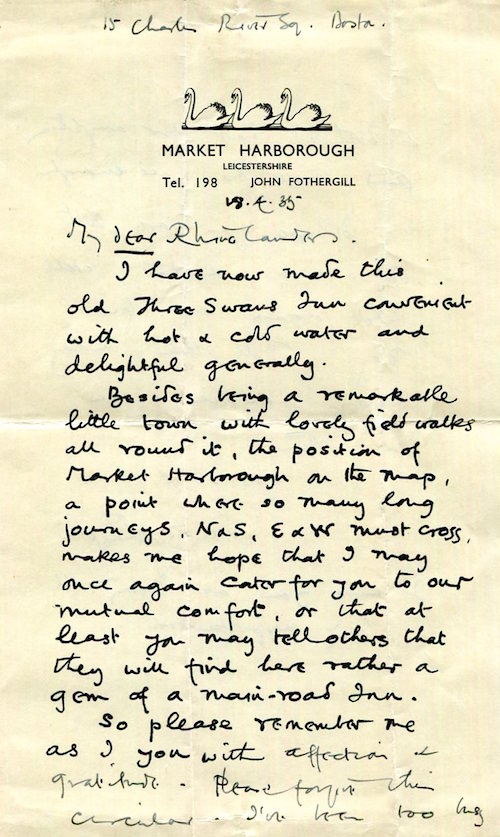 15 Charles River Sq. Boston.
MARKET HARBOROUGH
LEICESTERSHIRE
Tel. 198 JOHN FOTHERGILL
18.4.35
My dear Rhinelanders.
I have now made this
old Three Swans Inn convenient
with hot & cold water and
delightful generally.
Besides being a remarkable
little town with lovely field walks
all round it, the position of
Market Harborough on the map,
a point where so many long
journeys, N & S, E & W must cross,
makes me hope that I may
once again cater for you to our
mutual comfort, or that at
least you may tell others that
they will find here rather a
gem of a main-road Inn.
So please remember me
as I you with affection &
gratitude. Please forgive this
circular. I've been too busy